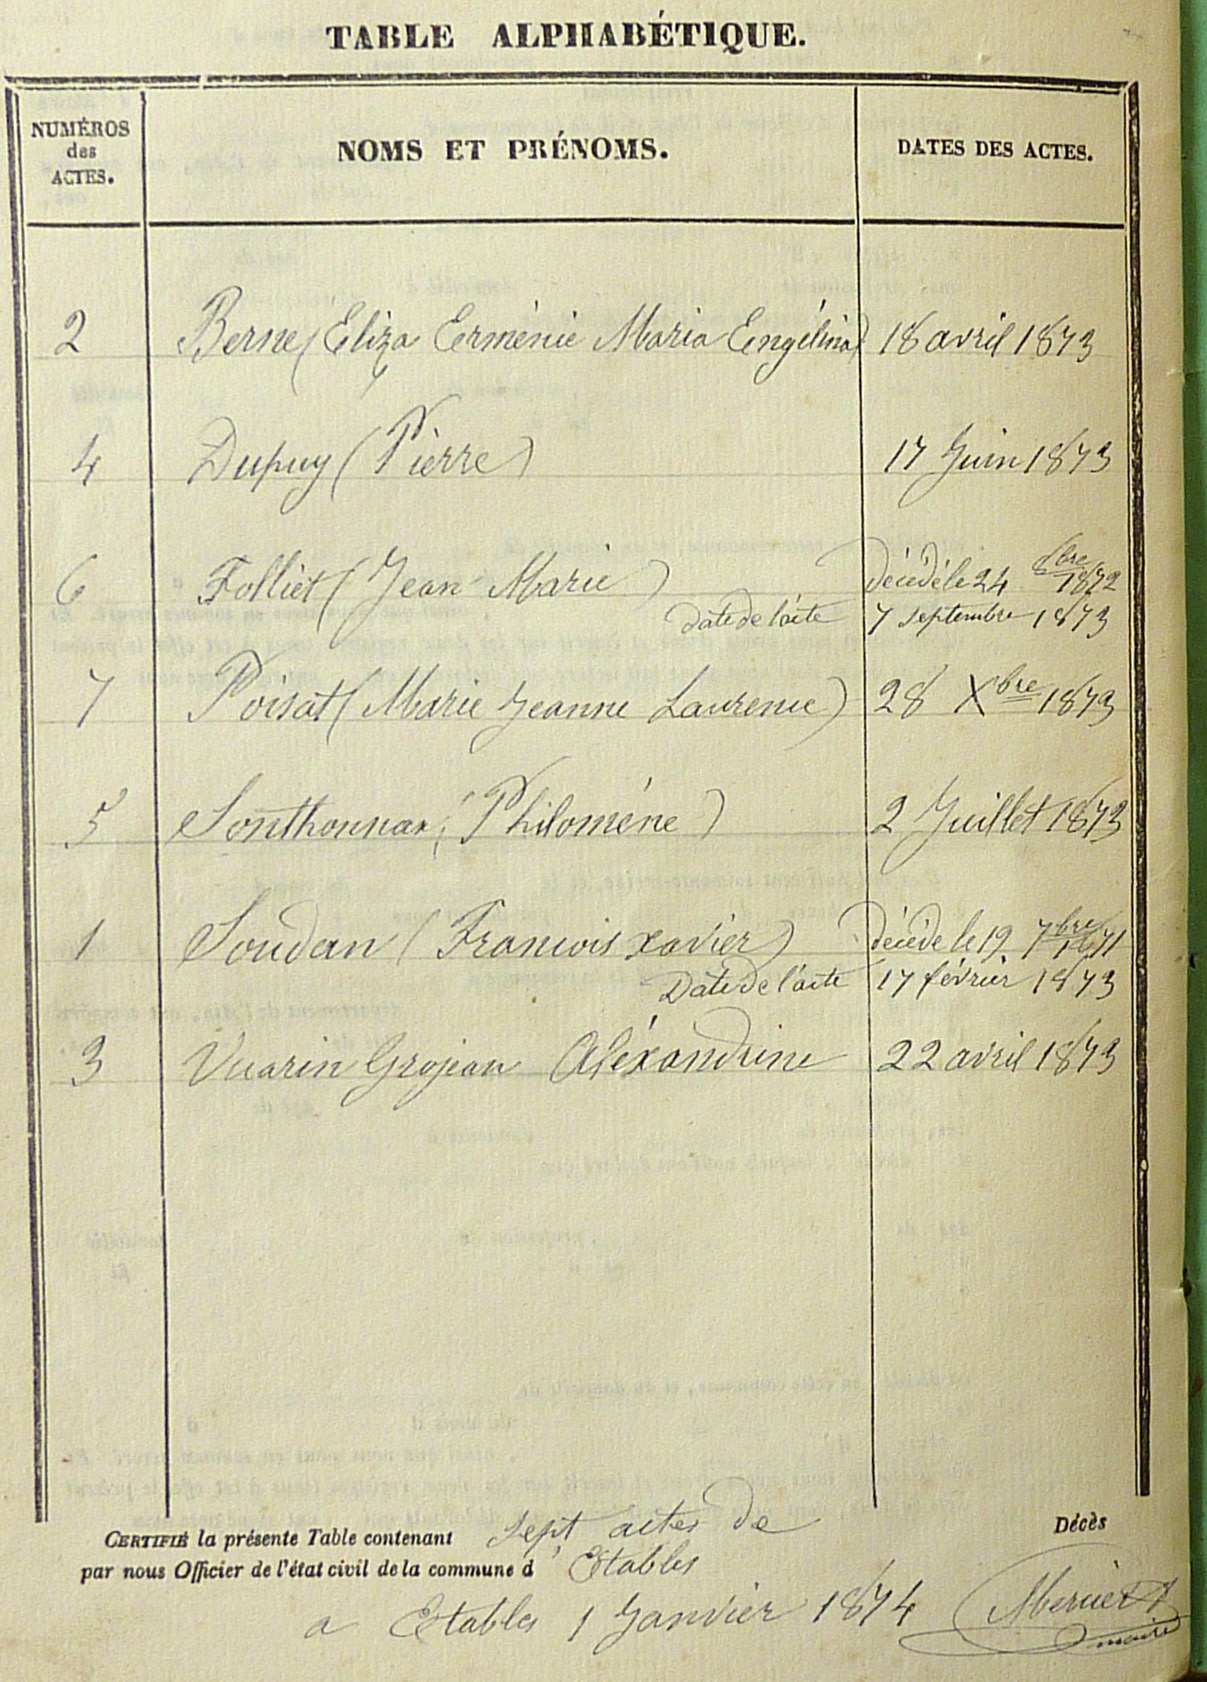 TABLE ALPHABÉTIQUE.
NUMÉROS
des
ACTES.
NOMS ET PRÉNOMS.
DATES DES ACTES.
2 Berne (Éliza Erménie Maria Engélina) 18 avril 1873
4 Dupuy (Pierre) 17 Juin 1873
6 Folliet (Jean Marie) décédé le 24 8bre 1872
Date de l'acte 7 septembre 1873
7 Poisat (Marie Jeanne Laurence) 28 Xbre 1873
5 Sonthonnax (Philoméne) 2 Juillet 1873
1 Soudan (Francois Xavier) décédé le 19 7bre 1871
Date de l'acte 17 février 1873
3 Vuarin Grojean Aléxandrine 22 avril 1873
CERTIFIÉ la présente Table contenant sept actes de Décès
par nous Officier de l'état civil de la commune d' Etables
a Etables 1 Janvier 1874
maire